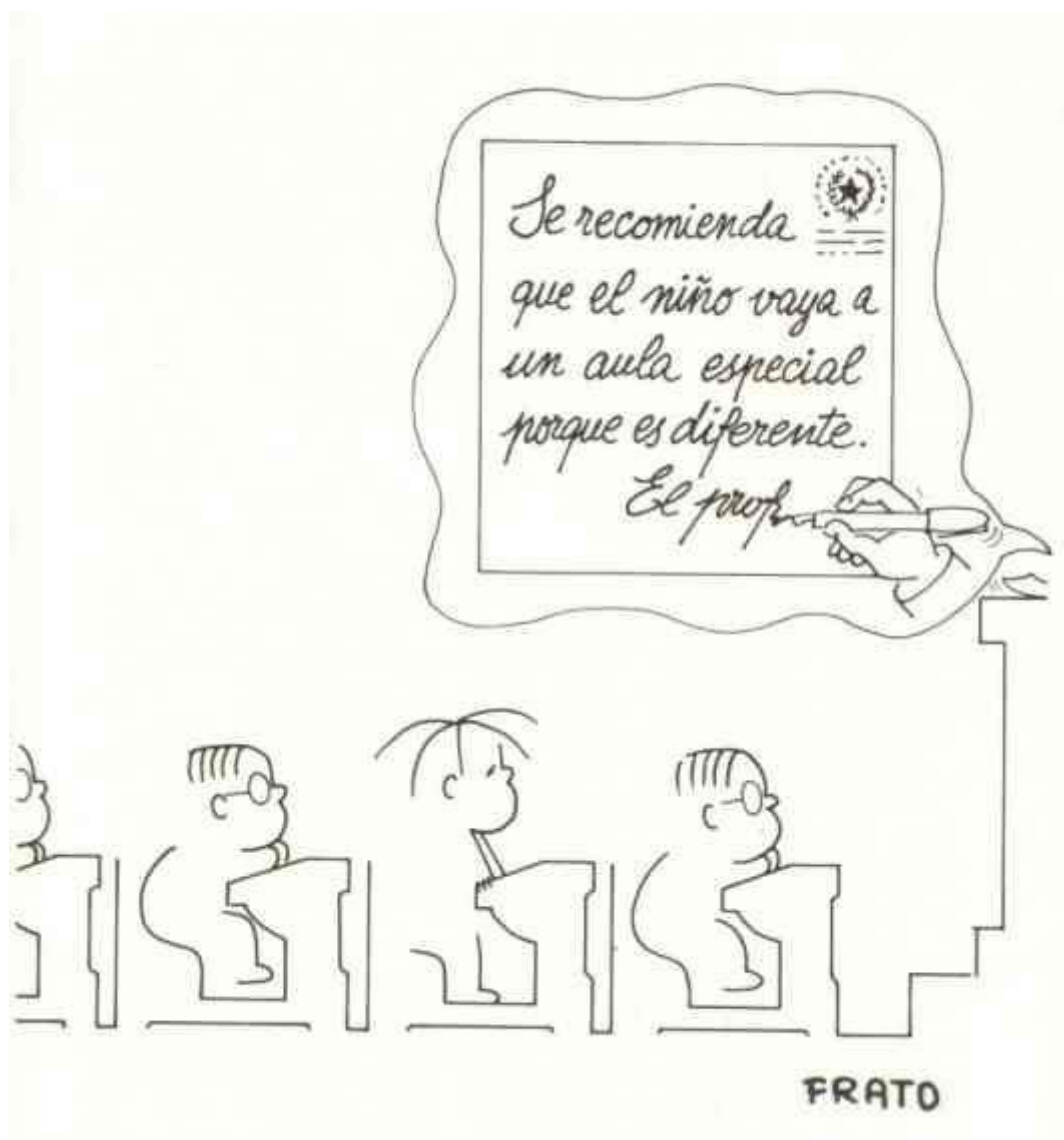 Se recomienda
que el niño vaya a
un aula especial
porque es diferente.
El prof
FRATO